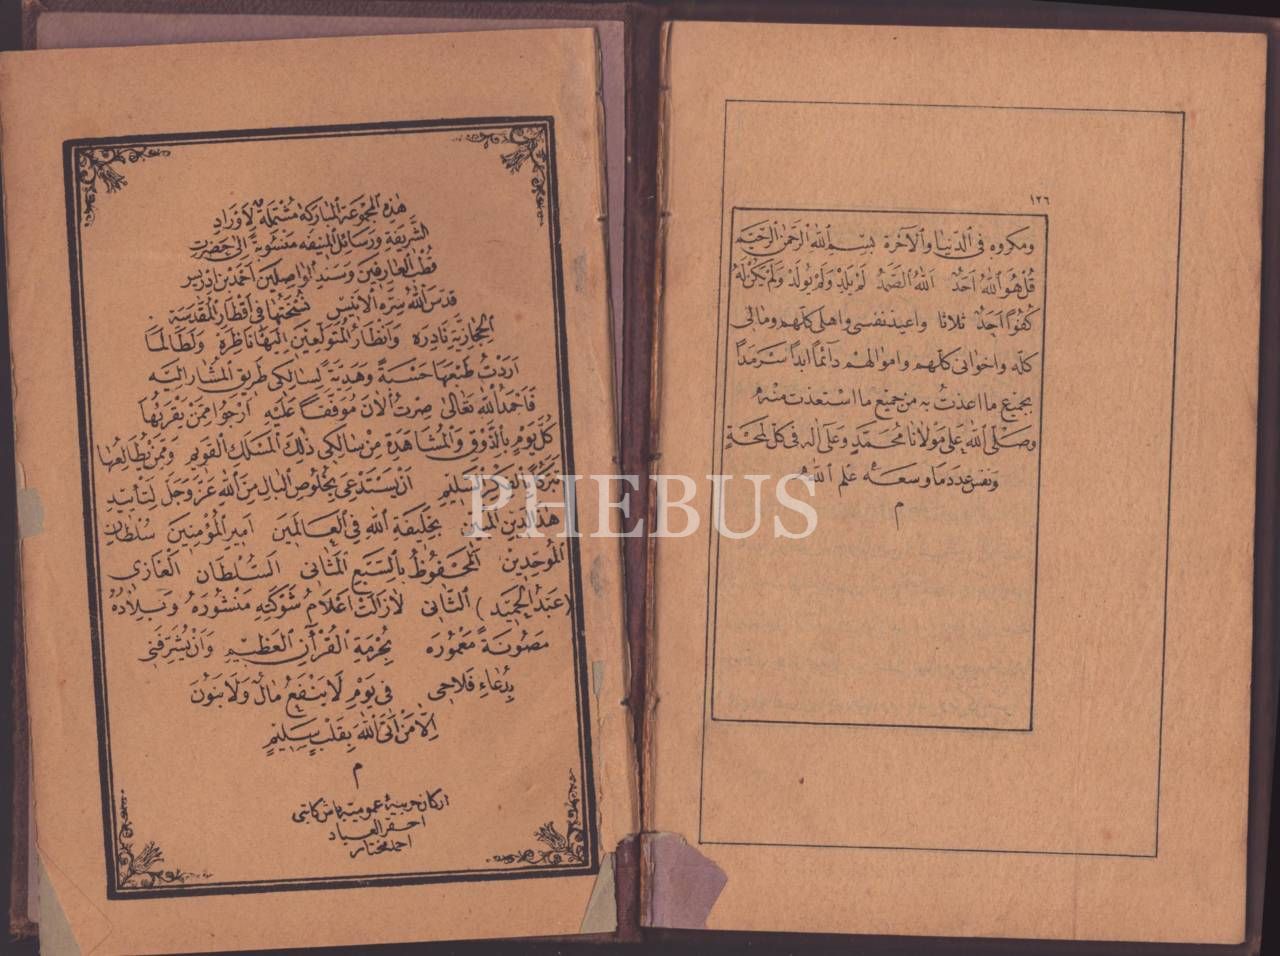 ١٢٦
ومكروه فى الدنيا والآخرة بسم الله الرحمن الرحيم
قل هو الله احد الله الصمد لم يلد ولم يولد ولم يكن له
كفوا احد ثلاثا واعيذ نفسى واهلى كلهم ومالى
كله واخوانى كلهم واموالهم دآئما ابدا سرمدا
بجميع ما اعذت به من جميع ما استعذت منه
وصلى الله على مولانا محمد وعلى اله فى كل لمحة
ونفس عدد ما وسعه علم الله
م
هذه المجموعة المباركة مشتملة لاوراد
الشريفة ورسائل المنيفه منسوبة الى حضرت
قطب العارفين وسند الواصلين احمد بن ادريس
قدس الله سره الانيس نسختها فى اقطار المقدسة
الحجازية نادره وانظار المتولعين اليها ناظرة ولطالما
اردت طبعها حسبة وهدية لسالكى طريق المشار اليه
فاحمد الله تعالى صرت الان موفقا عليه ارجوا ممن يقربها
كل يوم بالذوق والمشاهدة من سالكى ذلك المسلك القويم وممن يطالعها
تبركا السليم ان يستدعى بخلوص البال من الله عز وجل لتأييد
هذا الدين المبين بخليفة الله فى العالمين امير المؤمنين سلطان
الموحدين المحفوظ بالسبع المثانى السلطان الغازى
(عبد الحميد) الثانى لازالت اعلام شوكته منشوره وبلاده
مصونة معموره بحرمة القرآن العظيم وان يشرفنى
بدعاء فلاحى فى يوم لا ينفع مال ولا بنون
الا من اتى الله بقلب سليم
م
اركان حربية عموميه باش كاتبى
احقر العباد
احمد مختار
PHEBUS